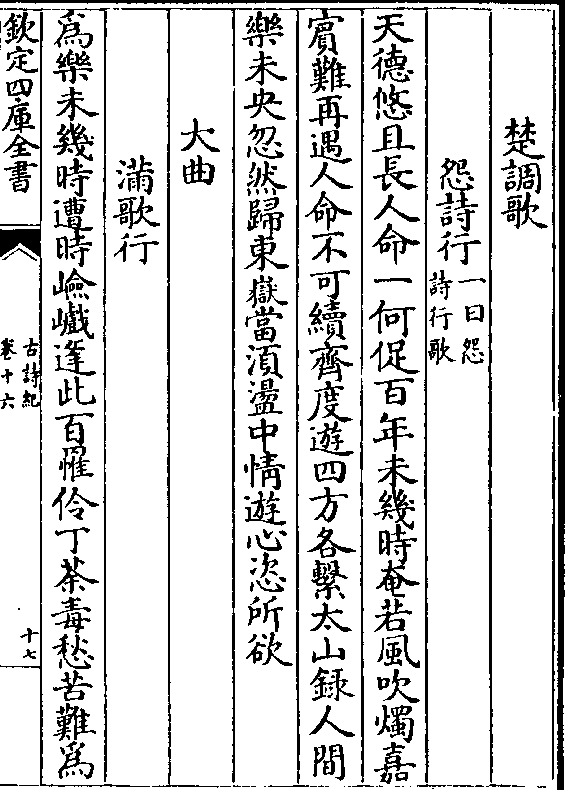 楚調歌
怨詩行一曰怨
詩行歌
天德悠且長人命一何促百年未幾時奄若風吹燭嘉
賓難再遇人命不可續齊度遊四方各繫太山録人間
樂未央忽然歸東嶽當須盪中情遊心恣所欲
大曲
滿歌行
爲樂未幾時遭時嶮巇逢此百罹伶丁荼毒愁苦難爲
欽定四庫全書
古詩紀
卷十六
十七